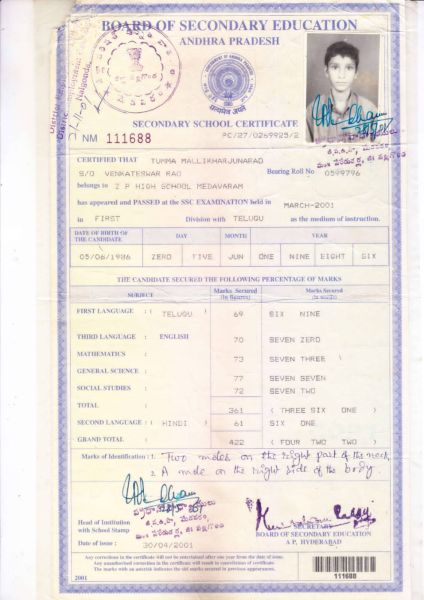 BOARD OF SECONDARY EDUCATION
ANDHRA PRADESH
SECONDARY SCHOOL CERTIFICATE
PC/27/0269925/2
NM 111688
CERTIFIED THAT TUMMA MALLIKHARJUNARAO
S/O VENKATESWAR RAO Bearing Roll No 0599796
belongs to Z P HIGH SCHOOL MEDAVARAM
has appeared and PASSED at the SSC EXAMINATION held in MARCH-2001
in FIRST Division with TELUGU as the medium of instruction.
DATE OF BIRTH OF THE CANDIDATE DAY MONTH YEAR
05/06/1986 ZERO FIVE JUN ONE NINE EIGHT SIX
THE CANDIDATE SECURED THE FOLLOWING PERCENTAGE OF MARKS
SUBJECT Marks Secured (In Figures) Marks Secured (In words)
FIRST LANGUAGE : ( TELUGU ) 69 SIX NINE
THIRD LANGUAGE : ENGLISH 70 SEVEN ZERO
MATHEMATICS : 73 SEVEN THREE
GENERAL SCIENCE : 77 SEVEN SEVEN
SOCIAL STUDIES : 72 SEVEN TWO
TOTAL 361 ( THREE SIX ONE )
SECOND LANGUAGE : ( HINDI ) 61 SIX ONE
GRAND TOTAL 422 (FOUR TWO TWO )
Marks of Identification : 1. Two moles on the right part of the neck
2. A mole on the right side of the body
Head of Institution
with School Stamp
SECRETARY
BOARD OF SECONDARY EDUCATION
A P, HYDERABAD
Date of issue : 30/04/2001
Any corrections in the certificate will not be entertained after one year from the date of issue.
Any unauthorised correction in the certificate will result in cancellation of certificate.
The marks with an asterisk indicates the old marks secured in previous appearances.
2001
111688